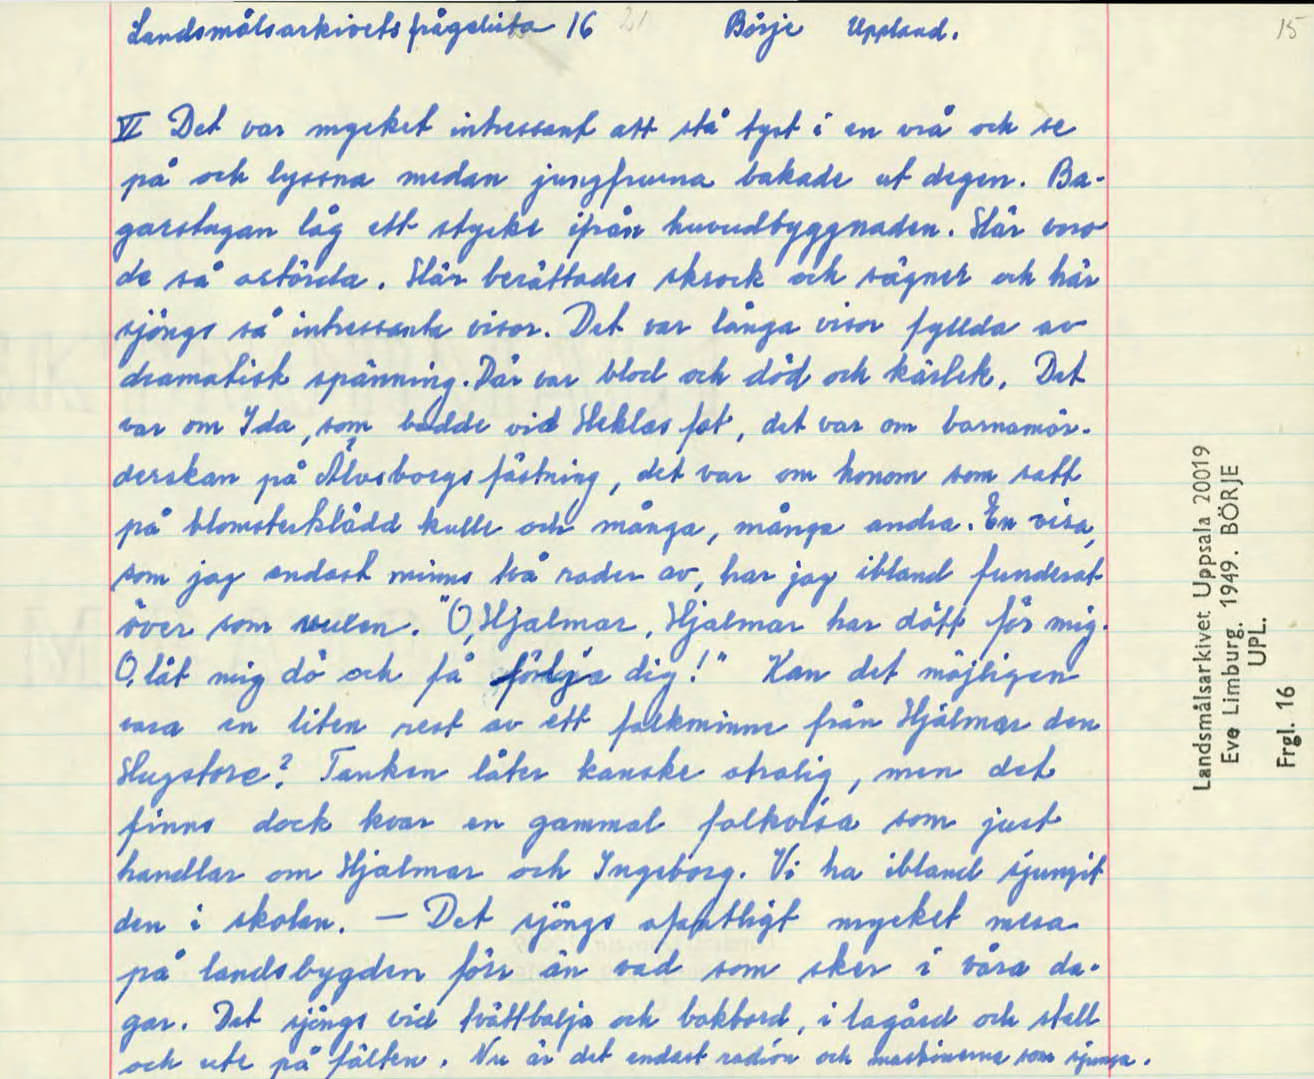 Landsmålsarkivets frågelista 16 21 Börje Uppland. 15
VI Det var mycket intressant att stå tyst i en vrå och se
på och lyssna medan jungfrurna bakade ut degen. Ba-
garstugan låg ett stycke ifrån huvudbyggnaden. Här voro
de så ostörda. Här berättades skrock och sägner och här
sjöngs så intressanta visor. Det var långa visor fyllda av
dramatisk spänning. Där var blod och död och kärlek. Det
var om Ida, som bodde vid Heklas fot, det var om barnamör-
derskan på Älvsborgs fästning, det var om honom som satt
på blomsterklädd kulle och många, många andra. En visa,
som jag endast minns två rader av, har jag ibland funderat
över som vuxen. "O, Hjalmar, Hjalmar har dött för mig.
O, låt mig dö och få följa dig!" Kan det möjligen
vara en liten rest av ett folkminne från Hjälmar den
Hugstore? Tanken låter kanske otrolig, men det
finns dock kvar en gammal folkvisa som just
handlar om Hjalmar och Ingeborg. Vi ha ibland sjungit
den i skolan. — Det sjöngs ofantligt mycket mera
på landsbygden förr än vad som sker i våra da-
gar. Det sjöngs vid tvättbalja och bakbord, i lagård och stall
och ute på fälten. Nu är det endast radion och maskinerna som sjunga.
Landsmålsarkivet Uppsala 20019
Eva Limburg. 1949. BÖRJE
UPL.
Frgl. 16